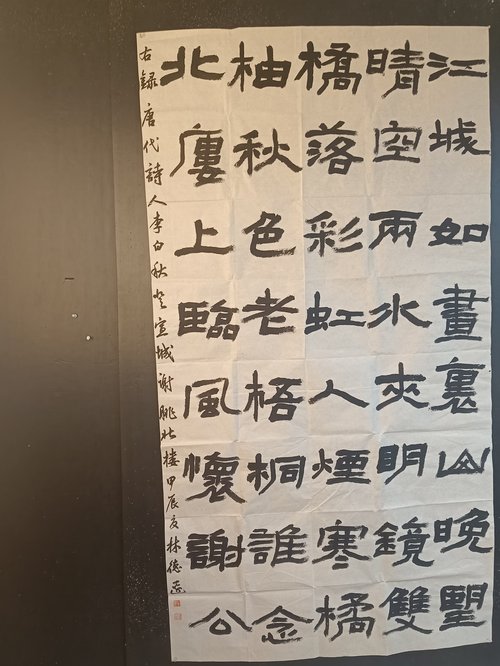 江城如畫裏山晚朢
晴空兩水夾明鏡雙
橋落彩虹人煙寒橘
柚秋色老梧桐誰念
北廔上臨風懷謝公
右録唐代詩人李白秋登宣城謝朓北楼甲辰夏林德志